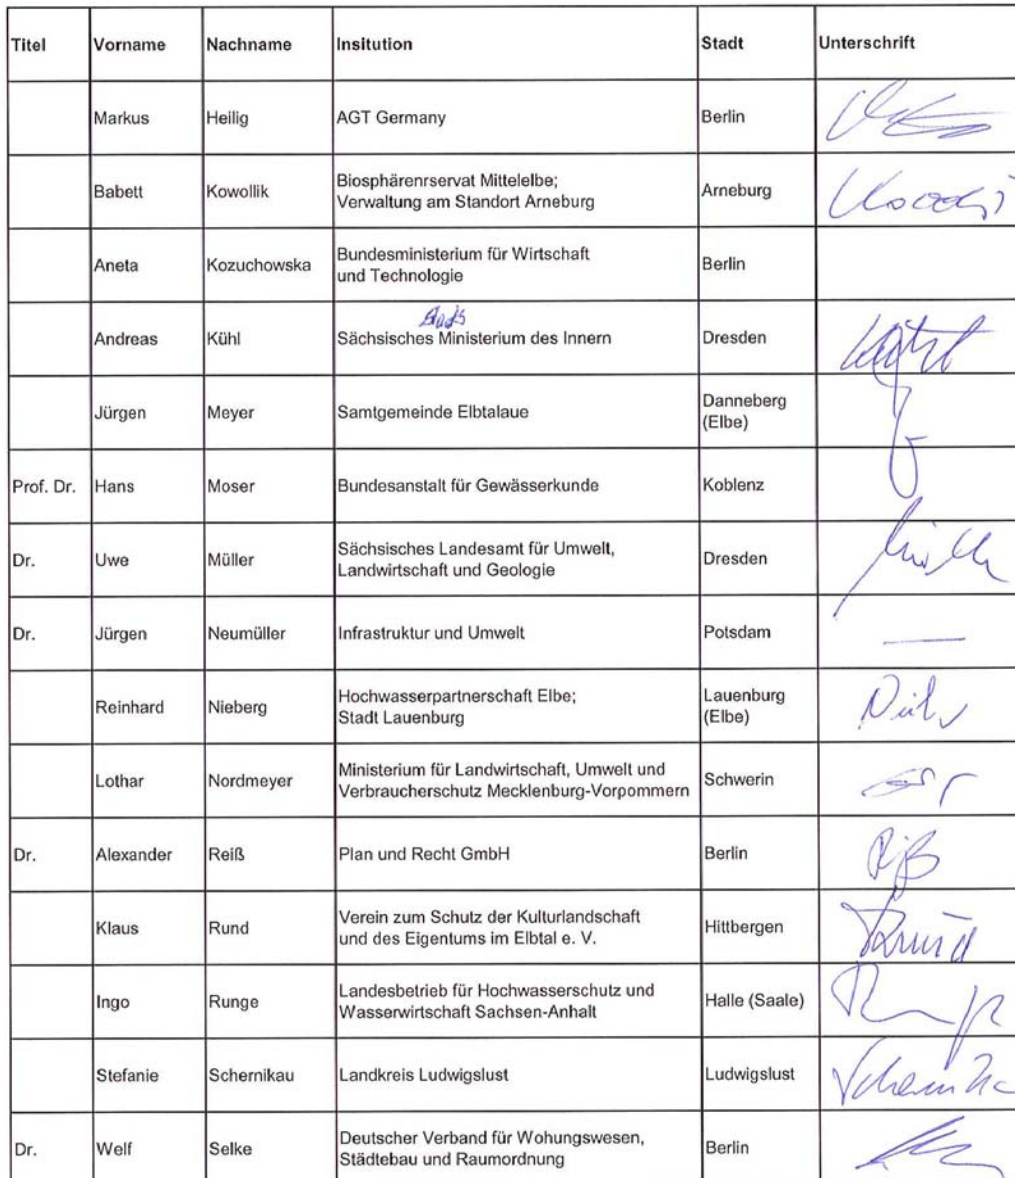 Titel Vorname Nachname Insitution Stadt Unterschrift
Markus Heilig AGT Germany Berlin
Babett Kowollik Biosphärenrservat Mittelelbe;
Verwaltung am Standort Arneburg Arneburg
Aneta Kozuchowska Bundesministerium für Wirtschaft
und Technologie Berlin
Andreas Kühl Sächsisches Ministerium des Innern Dresden
Jürgen Meyer Samtgemeinde Elbtalaue Danneberg
(Elbe)
Prof. Dr. Hans Moser Bundesanstalt für Gewässerkunde Koblenz
Dr. Uwe Müller Sächsisches Landesamt für Umwelt,
Landwirtschaft und Geologie Dresden
Dr. Jürgen Neumüller Infrastruktur und Umwelt Potsdam
Reinhard Nieberg Hochwasserpartnerschaft Elbe;
Stadt Lauenburg Lauenburg
(Elbe)
Lothar Nordmeyer Ministerium für Landwirtschaft, Umwelt und
Verbraucherschutz Mecklenburg-Vorpommern Schwerin
Dr. Alexander Reiß Plan und Recht GmbH Berlin
Klaus Rund Verein zum Schutz der Kulturlandschaft
und des Eigentums im Elbtal e. V. Hittbergen
Ingo Runge Landesbetrieb für Hochwasserschutz und
Wasserwirtschaft Sachsen-Anhalt Halle (Saale)
Stefanie Schernikau Landkreis Ludwigslust Ludwigslust
Dr. Welf Selke Deutscher Verband für Wohungswesen,
Städtebau und Raumordnung Berlin